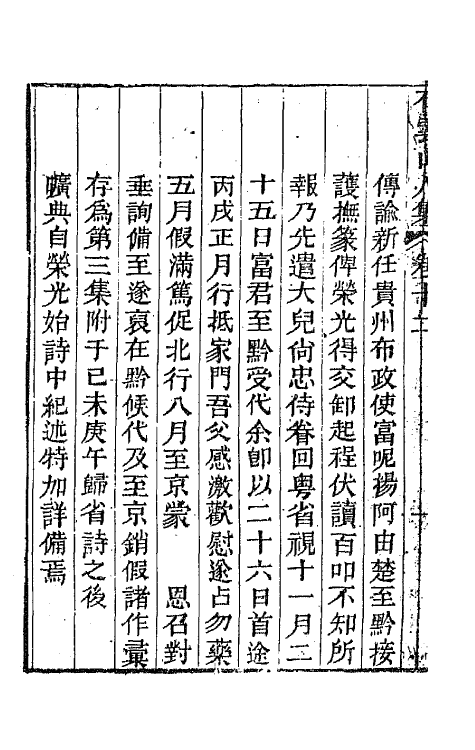 傳諭新任貴州布政使富呢揚阿由楚至黔接
護撫篆俾榮光得交卸起程伏讀百叩不知所
報乃先遣大兒尙忠侍眷回粤省視十一月二
十五日富君至黔受代余卽以二十六日首途
丙戌正月行抵家門吾父感激歡慰遂占勿藥
五月假滿篤促北行八月至京蒙　恩召對
垂詢備至遂裒在黔候代及至京銷假諸作彙
存爲第三集附于己未庚午歸省詩之後
曠典自榮光始詩中紀述特加詳備焉